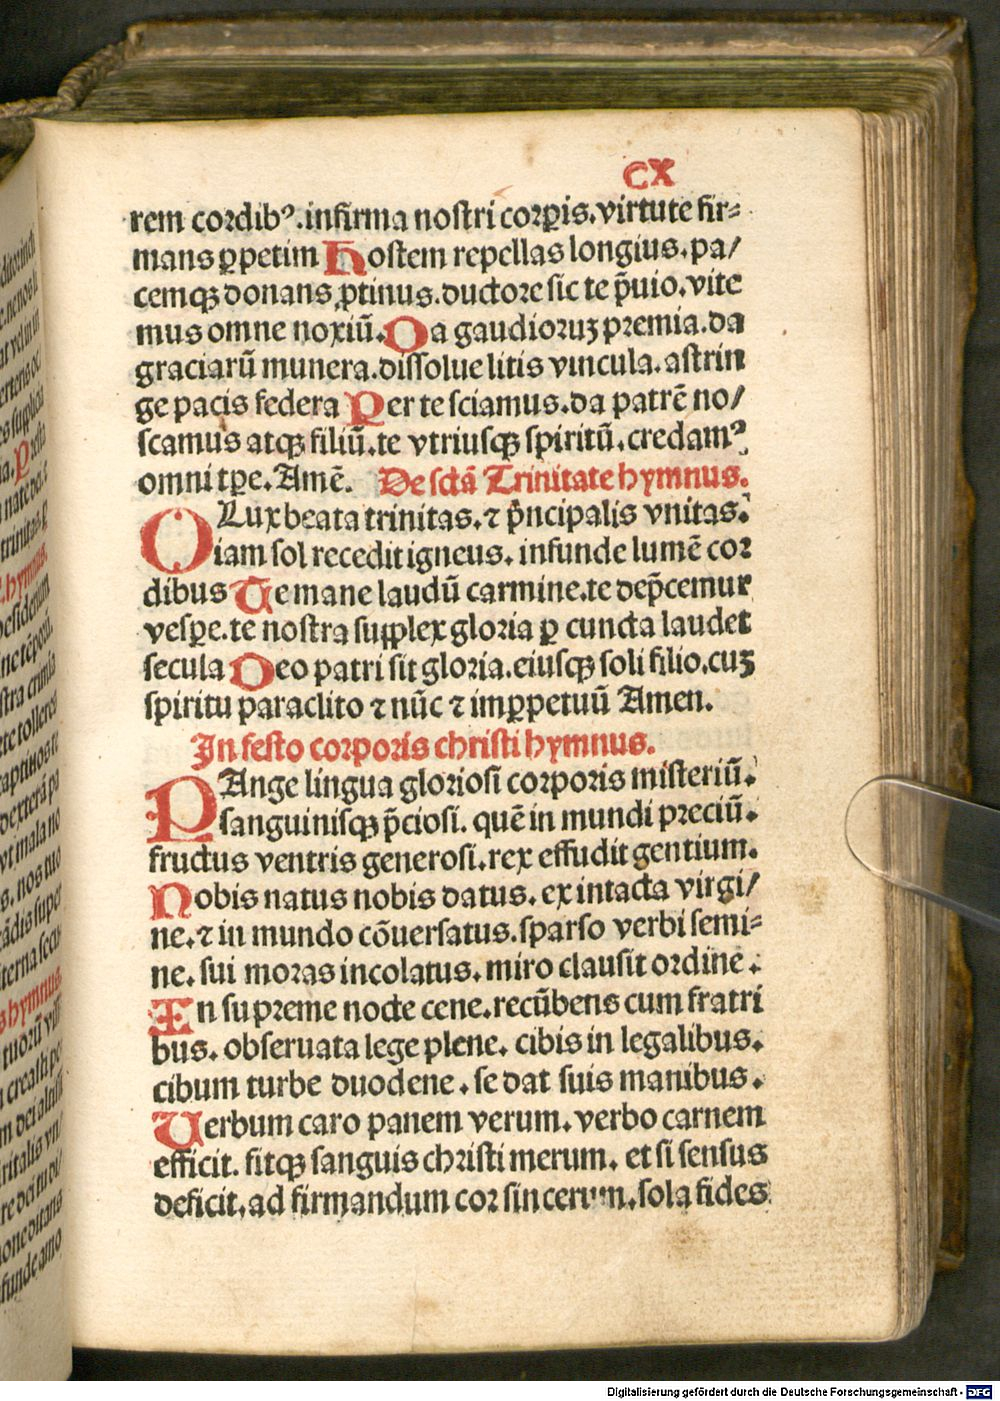 CX
rem cordibꝰ.infirma nostri corꝑis.virtute fir⸗
mans ꝑpetim Hostem repellas longius.pa/
cemqꝫ donans ꝓtinus.ductore sic te p̄uio.vite
mus omne noxiū.Da gaudioruꝫ premia.da
graciarū munera.dissolue litis vincula.astrin
ge pacis federa Per te sciamus.da patrē no/
scamus atqꝫ filiū.te vtriusqꝫ spiritū.credamꝰ
omni tꝑe.Amē. De sctā Trinitate hymnus.
O Lux beata trinitas.⁊ p̄ncipalis vnitas.
iam sol recedit igneus.infunde lumē cor
dibus Te mane laudū carmine.te dep̄cemur
vesꝑe.te nostra supplex gloria ꝑ cuncta laudet
secula Deo patri sit gloria.eiusqꝫ soli filio.cuꝫ
spiritu paraclito ⁊ nūc ⁊ imꝑpetuū Amen.
In festo corporis christi hymnus.
PAnge lingua gloriosi corporis misteriū.
sanguinisqꝫ p̄ciosi. quē in mundi preciū.
fructus ventris generosi.rex effudit gentium.
Nobis natus nobis datus. ex intacta virgi/
ne.⁊ in mundo cōuersatus.sparso verbi semi⸗
ne. sui moras incolatus. miro clausit ordine.
En supreme nocte cene.recūbens cum fratri
bus. obseruata lege plene. cibis in legalibus.
cibum turbe duodene.se dat suis manibus.
Verbum caro panem verum.verbo carnem
efficit. fitqꝫ sanguis christi merum. et si sensus
deficit.ad firmandum cor sincerum.sola fides
Digitalisierung gefördert durch die Deutsche Forschungsgemeinschaft - DFG